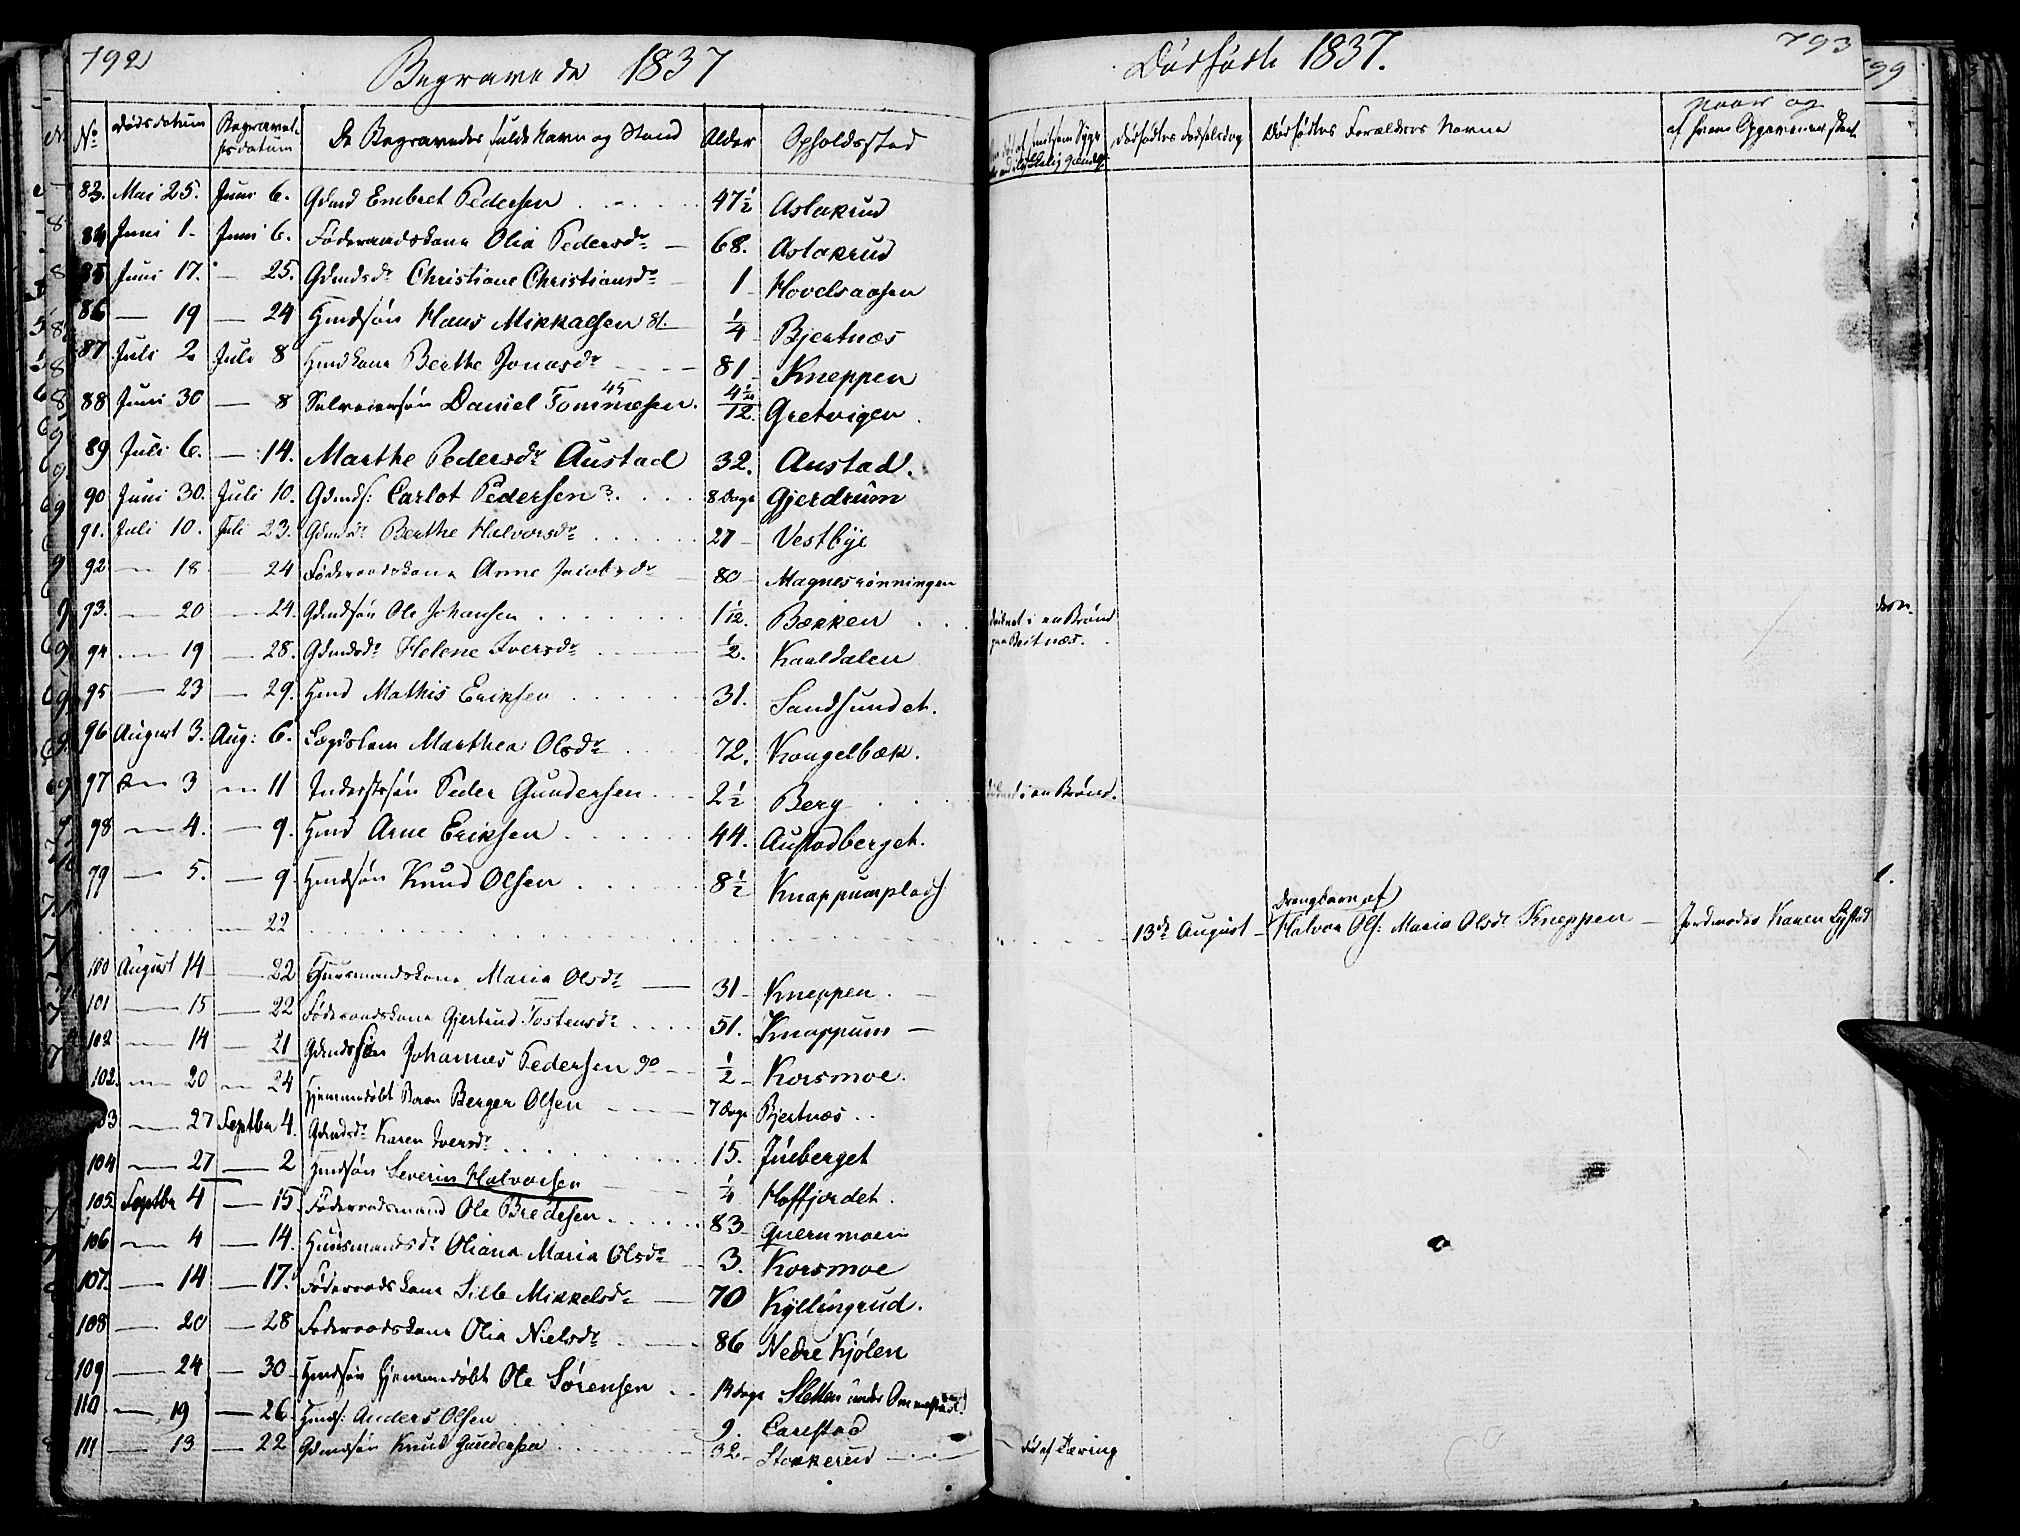 792
Begravede 1837
No Dødsdatum Begravelsesdatum De Begravedes fulde Navn og Stand Alder Opholdsstad
83. Mai 25. Juni 6. Gdmd Embret Pedersen 47½ Aslakrud
84 Juni 1. Juni 6. Føderaadskone Olia Pedersdr 68. Aslakrud
85 Juni 17. — 25. Gdmdsdr Christiane Christiansdr 1 Hovelsaasen
86 — 19 — 24 Hmdsøn Hans Mikkaelsen 81. ¼ Bjertnæs
87 Juli 2 Juli 8 Hmdkone Berthe Jonasdr 81 Kneppen
88 Juni 30 — 8 Selveiersøn Daniel Tommesen 45 4½/12 Gretvigen
89 Juli 6. — 14. Marthe Pedersdr Austad 32. Austad.
90 Juni 30. Juli 10. Gdmds: Carlot Pedersen 8 Dage Gjerdrum
91. Juli 10. Juli 23. Gdmdsdr Berthe Halvorsdr 27 Vestbye
92 — 18 — 24 Føderaadskone Anne Jacobsdr 80 Magnesrønningen
93. — 20 — 24. Gdmdsøn Ole Johansen 1 1/12. Bækken druknet i en Brønd paa Breitnæs.
94 — 19 — 28. Gdmdsdr Helene Iversdr ½. Kaaldalen
95 — 23 — 29. Hmd Mathis Eriksen 31. Sandsundet.
96 August 3. Aug: 6. Lægdslem Marthea Olsdr 72. Kongelbæk.
97 — 3 — 11 Inderstsøn Peder Gundersen 2½ Berg druknet i en Brønd.
98 — 4. — 9. Hmd Arne Eriksen 44. Austadberget.
99 — 5. — 9 Hmdsøn Knud Olsen 8½ Knappumplads
— 22
100 August 14 — 22 Huusmandskone Maria Olsdr 31 Kneppen.
101 — 15 — 22 Føderaadskone Gjertrud Tostensdr 51. Knappum
102 — 14 — 21 Gdmdssøn Johannes Pedersen 90 ½ Korsmoe.
102. — 20 — 24 Hjemmedøbt Barn Berger Olsen 7 Dage Bjertnæs
103 — 27 Septbr 4. Gdmdsdr Karen Iversdr 15. Juberget
104 — 27 — 2 Hmdsøn Severin Halvorsen ¼ Hoffjordet.
105 Septbr 4 — 15 Føderaadsmand Ole Bredesen 83 Quernmoen
106 — 4 — 14. Huusmandsdr Oliana Maria Olsdr 3. Korsmoe
107. — 14 — 17. Føderaadskone Sille Mikkelsdr 70 Kyllingrud.
108 — 20 — 28 Føderaadskone Olia Nielsdr 86 Nedre Kjølen
109 — 24 — 30 Hmdsøn hjemmedøbt Ole Sørensen Dage Sletten under
110 — 19 — 26. Hmds: Anders Olsen 9. Carlstad
111 — 13 — 22 Gdmdsøn Knud Gundersen 32 Stokkerud død af Tæring
Dødfødte 1837.
793
Dødfødtes Fødselsdag Dødfødtes Forældres Navne Naar og af hvem Opgaven er skeet
13de August Drengebarn af Halvor Ols: Maria Olsdr Kneppen Jordmoder Karen Lystad
799